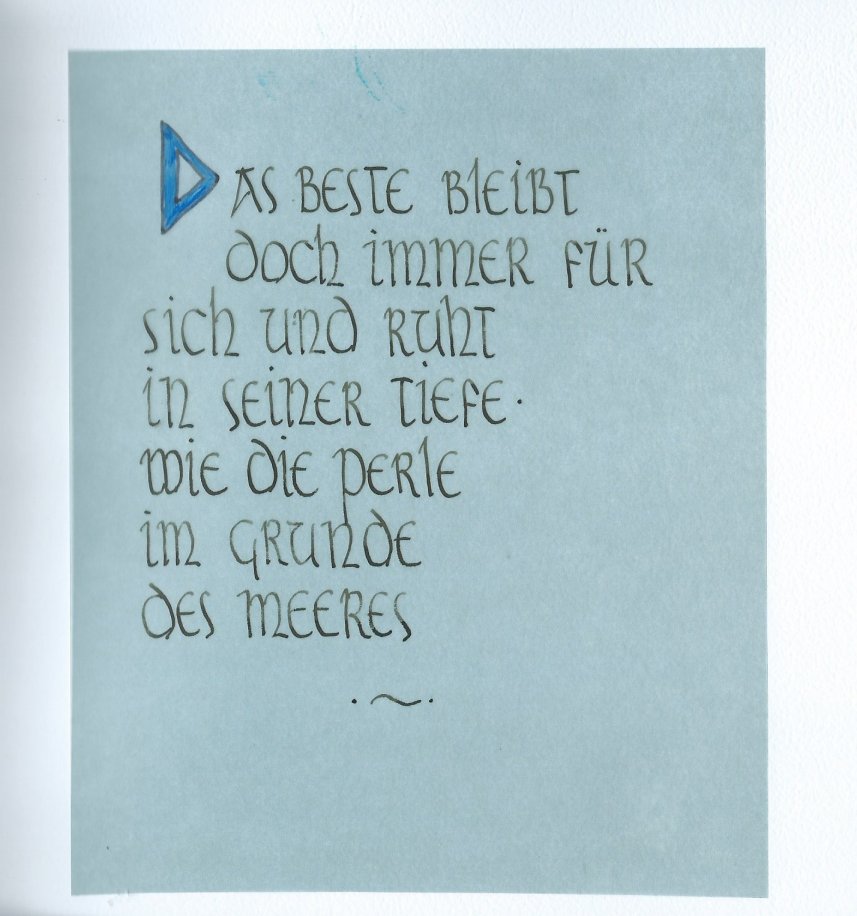 Das Beste bleibt
doch immer für
sich und ruht
in seiner Tiefe·
wie die Perle
im Grunde
des Meeres